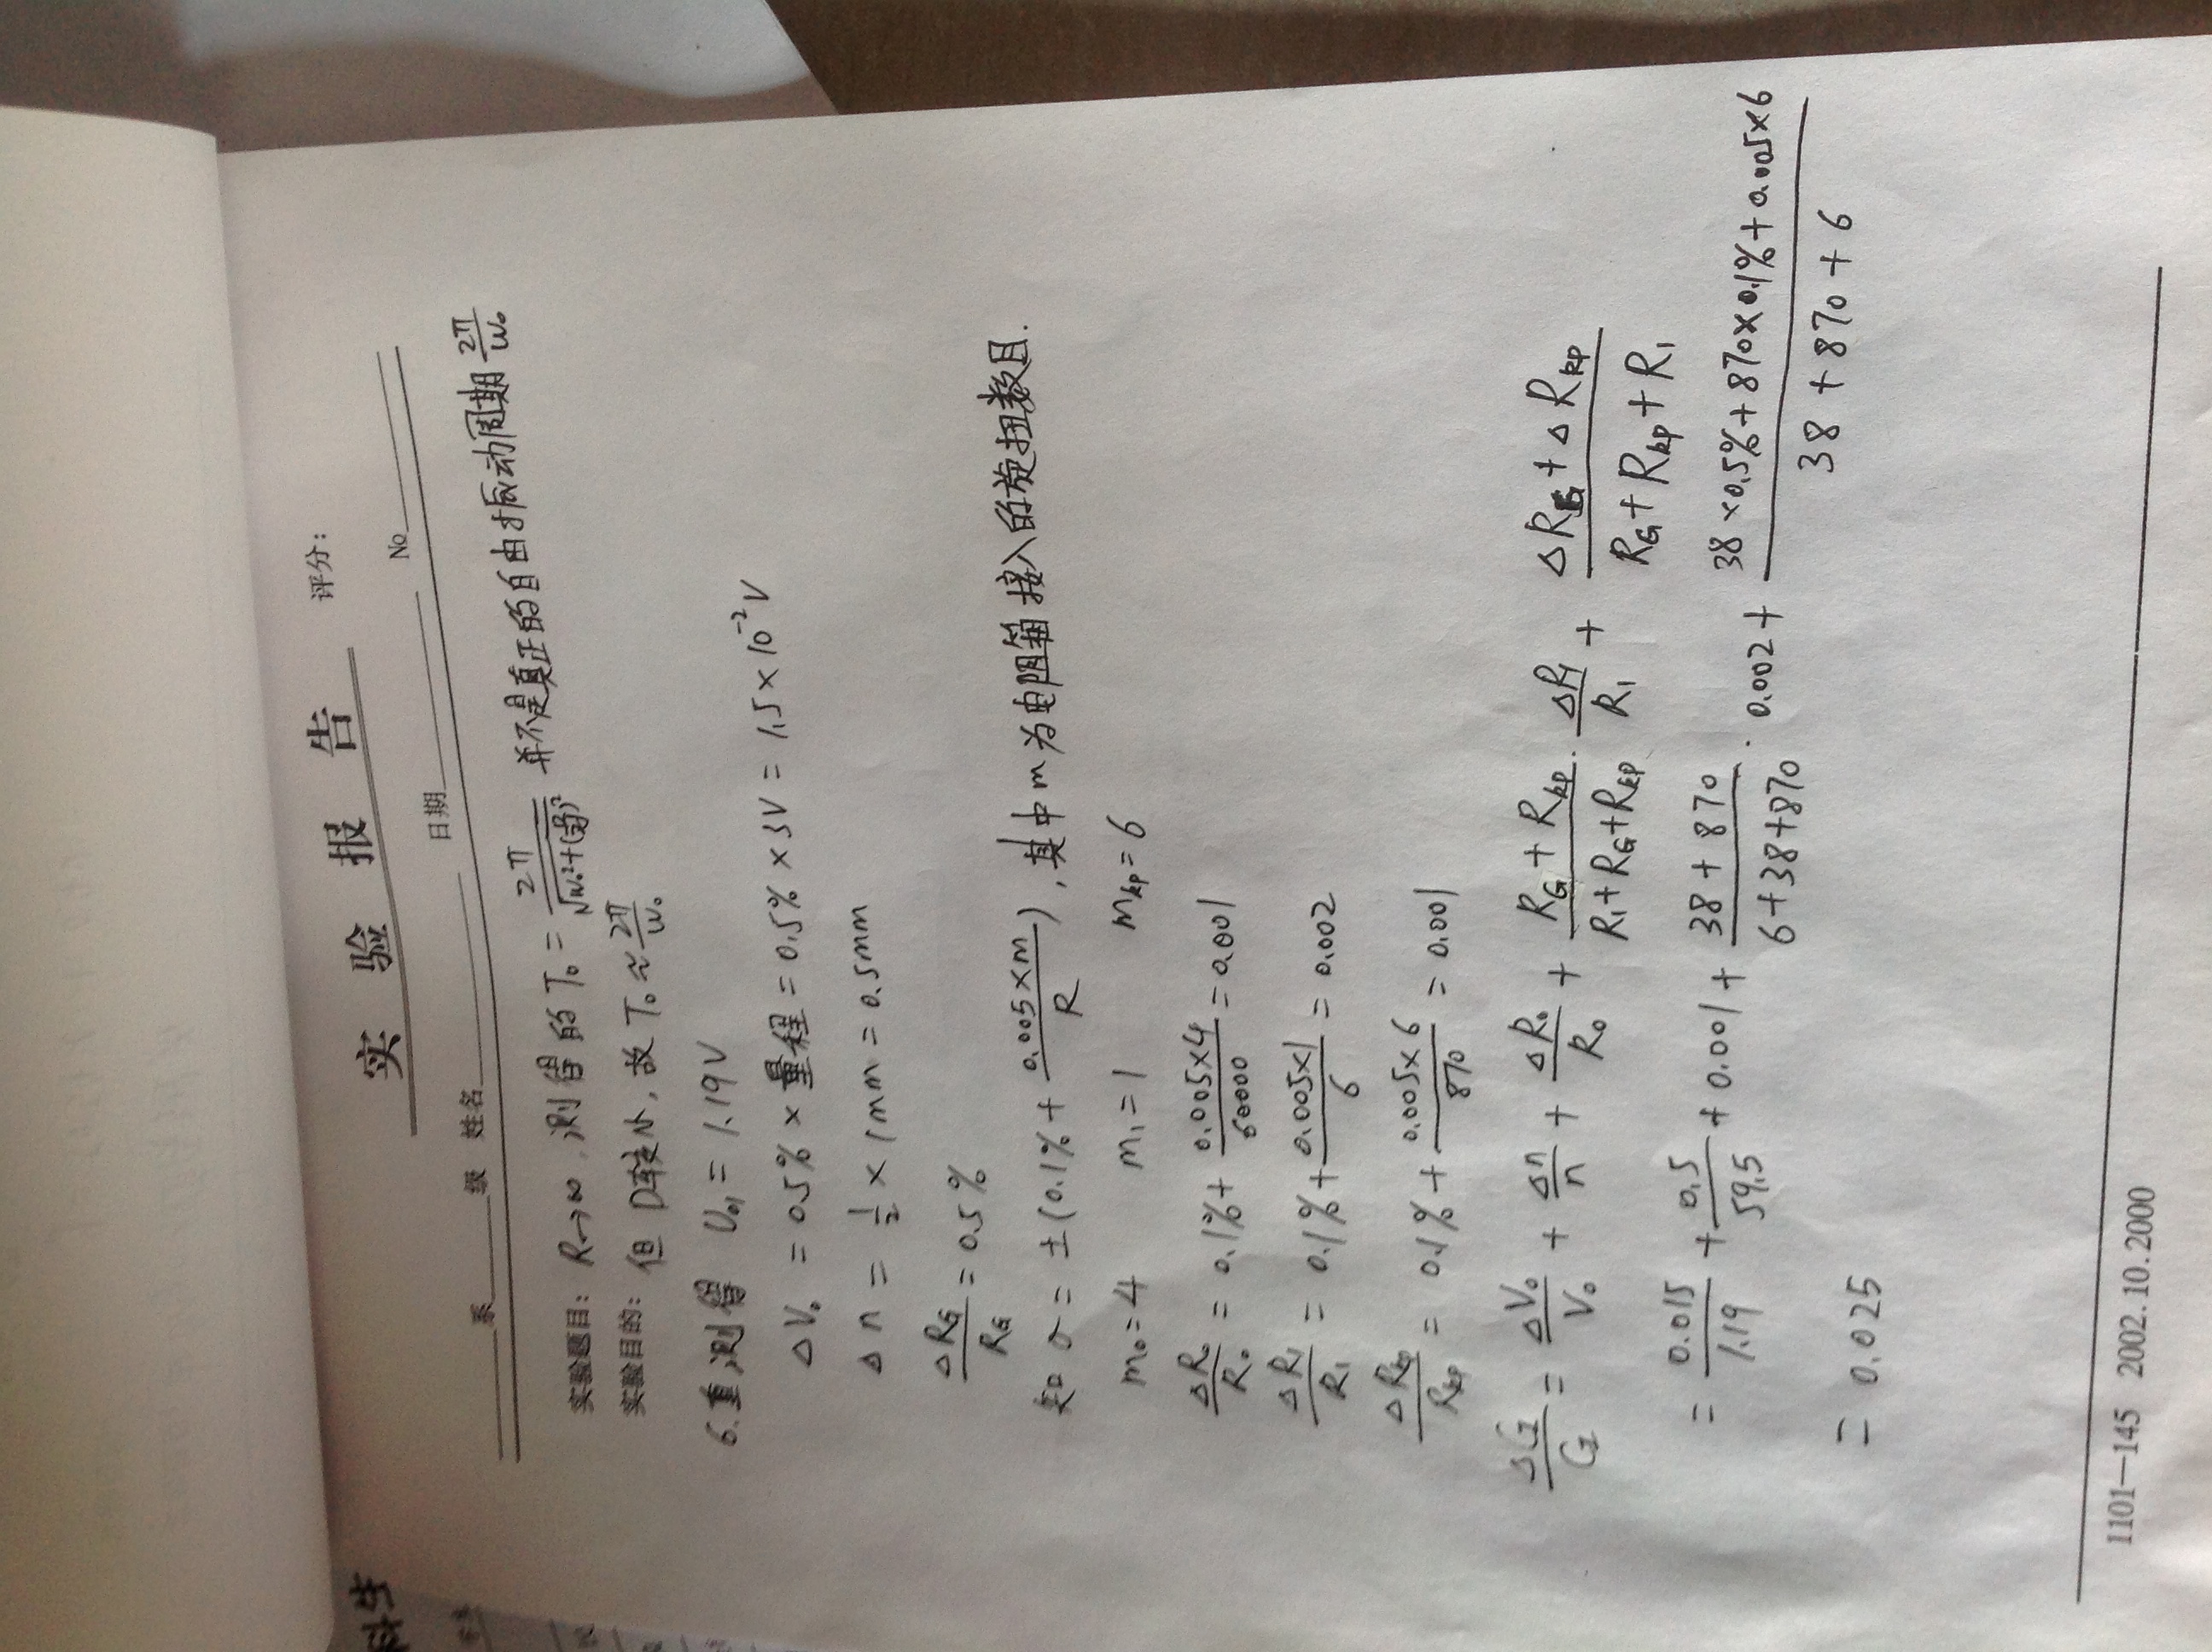 科生
实 验 报 告 评分:
系 级 姓名 日期 No
实验题目: R→∞, 测得的 T₀ = 2π/√(ω₀²+(D/2J)²) 并不是真正的自由振动周期 2π/ω₀
实验目的: 但 D较小, 故 T₀ ≈ 2π/ω₀
6. 重测得 U₀₁ = 1.19V
ΔV₀ = 0.5% × 量程 = 0.5% × 3V = 1.5×10⁻² V
Δn = 1/2 × 1mm = 0.5mm
ΔR_G/R_G = 0.5%
知 σ = ±(0.1% + 0.005×m/R), 其中m为电阻箱接入的旋扭数目.
m₀=4 m₁=1 m_kp=6
ΔR₀/R₀ = 0.1% + 0.005×4/60000 = 0.001
ΔR₁/R₁ = 0.1% + 0.005×1/6 = 0.002
ΔR_kp/R_kp = 0.1% + 0.005×6/870 = 0.001
ΔG/G = ΔV₀/V₀ + Δn/n + ΔR₀/R₀ + (R_G+R_kp)/(R₁+R_G+R_kp) · ΔR₁/R₁ + (ΔR_G+ΔR_kp)/(R_G+R_kp+R₁)
= 0.015/1.19 + 0.5/59.5 + 0.001 + (38+870)/(6+38+870) · 0.002 + (38×0.5%+870×0.1%+0.005×6)/(38+870+6)
= 0.025
1101—145 2002.10.2000